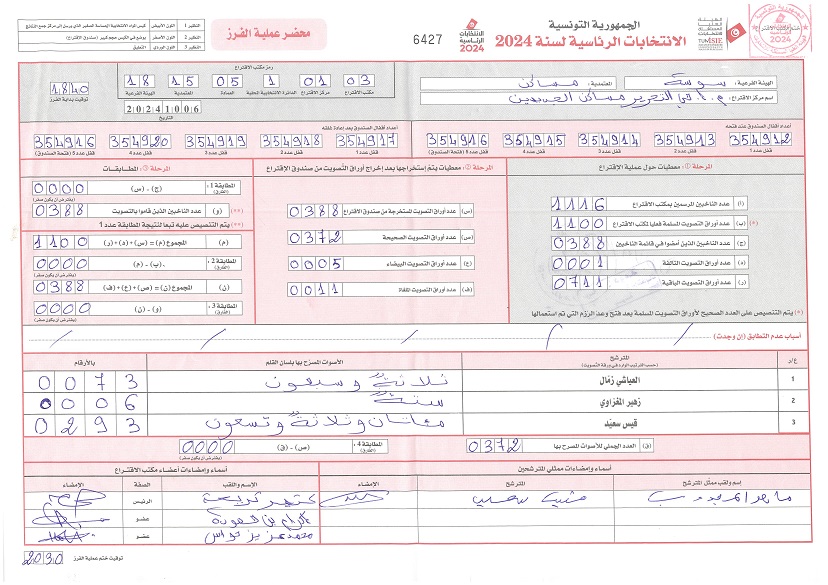 الجمهورية التونسية
الانتخابات الرئاسية لسنة 2024
الانتخابات الرئاسية 2024
6427
محضر عملية الفرز
النظير 1 اللون الأبيض
النظير 2 اللون الأصفر
النظير 3 اللون الوردي التعليق
الهيئة الفرعية: سوسة المعتمدية: مساكن
اسم مركز الاقتراع
رمز مكتب الاقتراع
03 01 1 05 15 18
مكتب الاقتراع مركز الاقتراع الدائرة الانتخابية المحلية العمادة المعتمدية الهيئة الفرعية
20241006
التاريخ
1840
توقيت بداية الفرز
أعداد أقفال الصندوق عند فتحه
354912 354913 354914 354915 354916
قفل عدد 1 قفل عدد 2 قفل عدد 3 قفل عدد 4 قفل عدد 5 (فتحة الصندوق)
أعداد أقفال الصندوق بعد إعادة غلقه
354917 354918 354919 354920 354916
قفل عدد 1 قفل عدد 2 قفل عدد 3 قفل عدد 4 قفل عدد 5 (فتحة الصندوق)
المرحلة 1: معطيات حول عملية الاقتراع
(أ) عدد الناخبين المرسمين بمكتب الاقتراع 1116
(ب) عدد أوراق التصويت المسلمة فعليا لمكتب الاقتراع 1100
(ج) عدد الناخبين الذين أمضوا في قائمة الناخبين 0388
(د) عدد أوراق التصويت التالفة 0001
(ر) عدد أوراق التصويت الباقية 0711
(*) يتم التنصيص على العدد الصحيح لأوراق التصويت المسلمة بعد فتح وعد الرزم التي تم استعمالها
المرحلة 2: معطيات يتم استخراجها بعد إخراج أوراق التصويت من صندوق الاقتراع
(س) عدد أوراق التصويت المستخرجة من صندوق الاقتراع 0388
(ص) عدد أوراق التصويت الصحيحة 0372
(ع) عدد أوراق التصويت البيضاء 0005
(ف) عدد أوراق التصويت الملغاة 0011
المرحلة 3: المطابقات
المطابقة 1: (الفارق) (ج) - (س) 0000
(يفترض أن يكون صفر)
(**) (و) عدد الناخبين الذين قاموا بالتصويت 0388
(**) يتم التنصيص عليه تبعا لنتيجة المطابقة عدد 1
(م) المجموع (م) = (س) + (د) + (ر) 1100
المطابقة 2: (الفارق) (ب) - (م) 0000
(يفترض أن يكون صفر)
(ن) المجموع (ن) = (ص) + (ع) + (ف) 0388
المطابقة 3: (الفارق) (و) - (ن) 0000
(يفترض أن يكون صفر)
أسباب عدم التطابق (إن وجدت)
ع/د المترشح الأصوات المصرح بها بلسان القلم بالأرقام
(حسب الترتيب الوارد في ورقة التصويت)
1 العياشي زمّال ثلاثة وسبعون 0073
2 زهير المغزاوي ستة 0006
3 قيس سعيّد مئتان وثلاثة وتسعون 0293
(ق) العدد الجملي للأصوات المصرح بها 0372
المطابقة 4: (الفارق) (ص) - (ق) 0000
(يفترض أن يكون صفر)
أسماء وإمضاءات ممثلي المترشحين
أسماء وإمضاءات أعضاء مكتب الاقتراع
إسم ولقب ممثل المترشح المترشح الإمضاء
الإسم واللقب الصفة الإمضاء
الرئيس
عضو
عضو
توقيت ختم عملية الفرز 2030